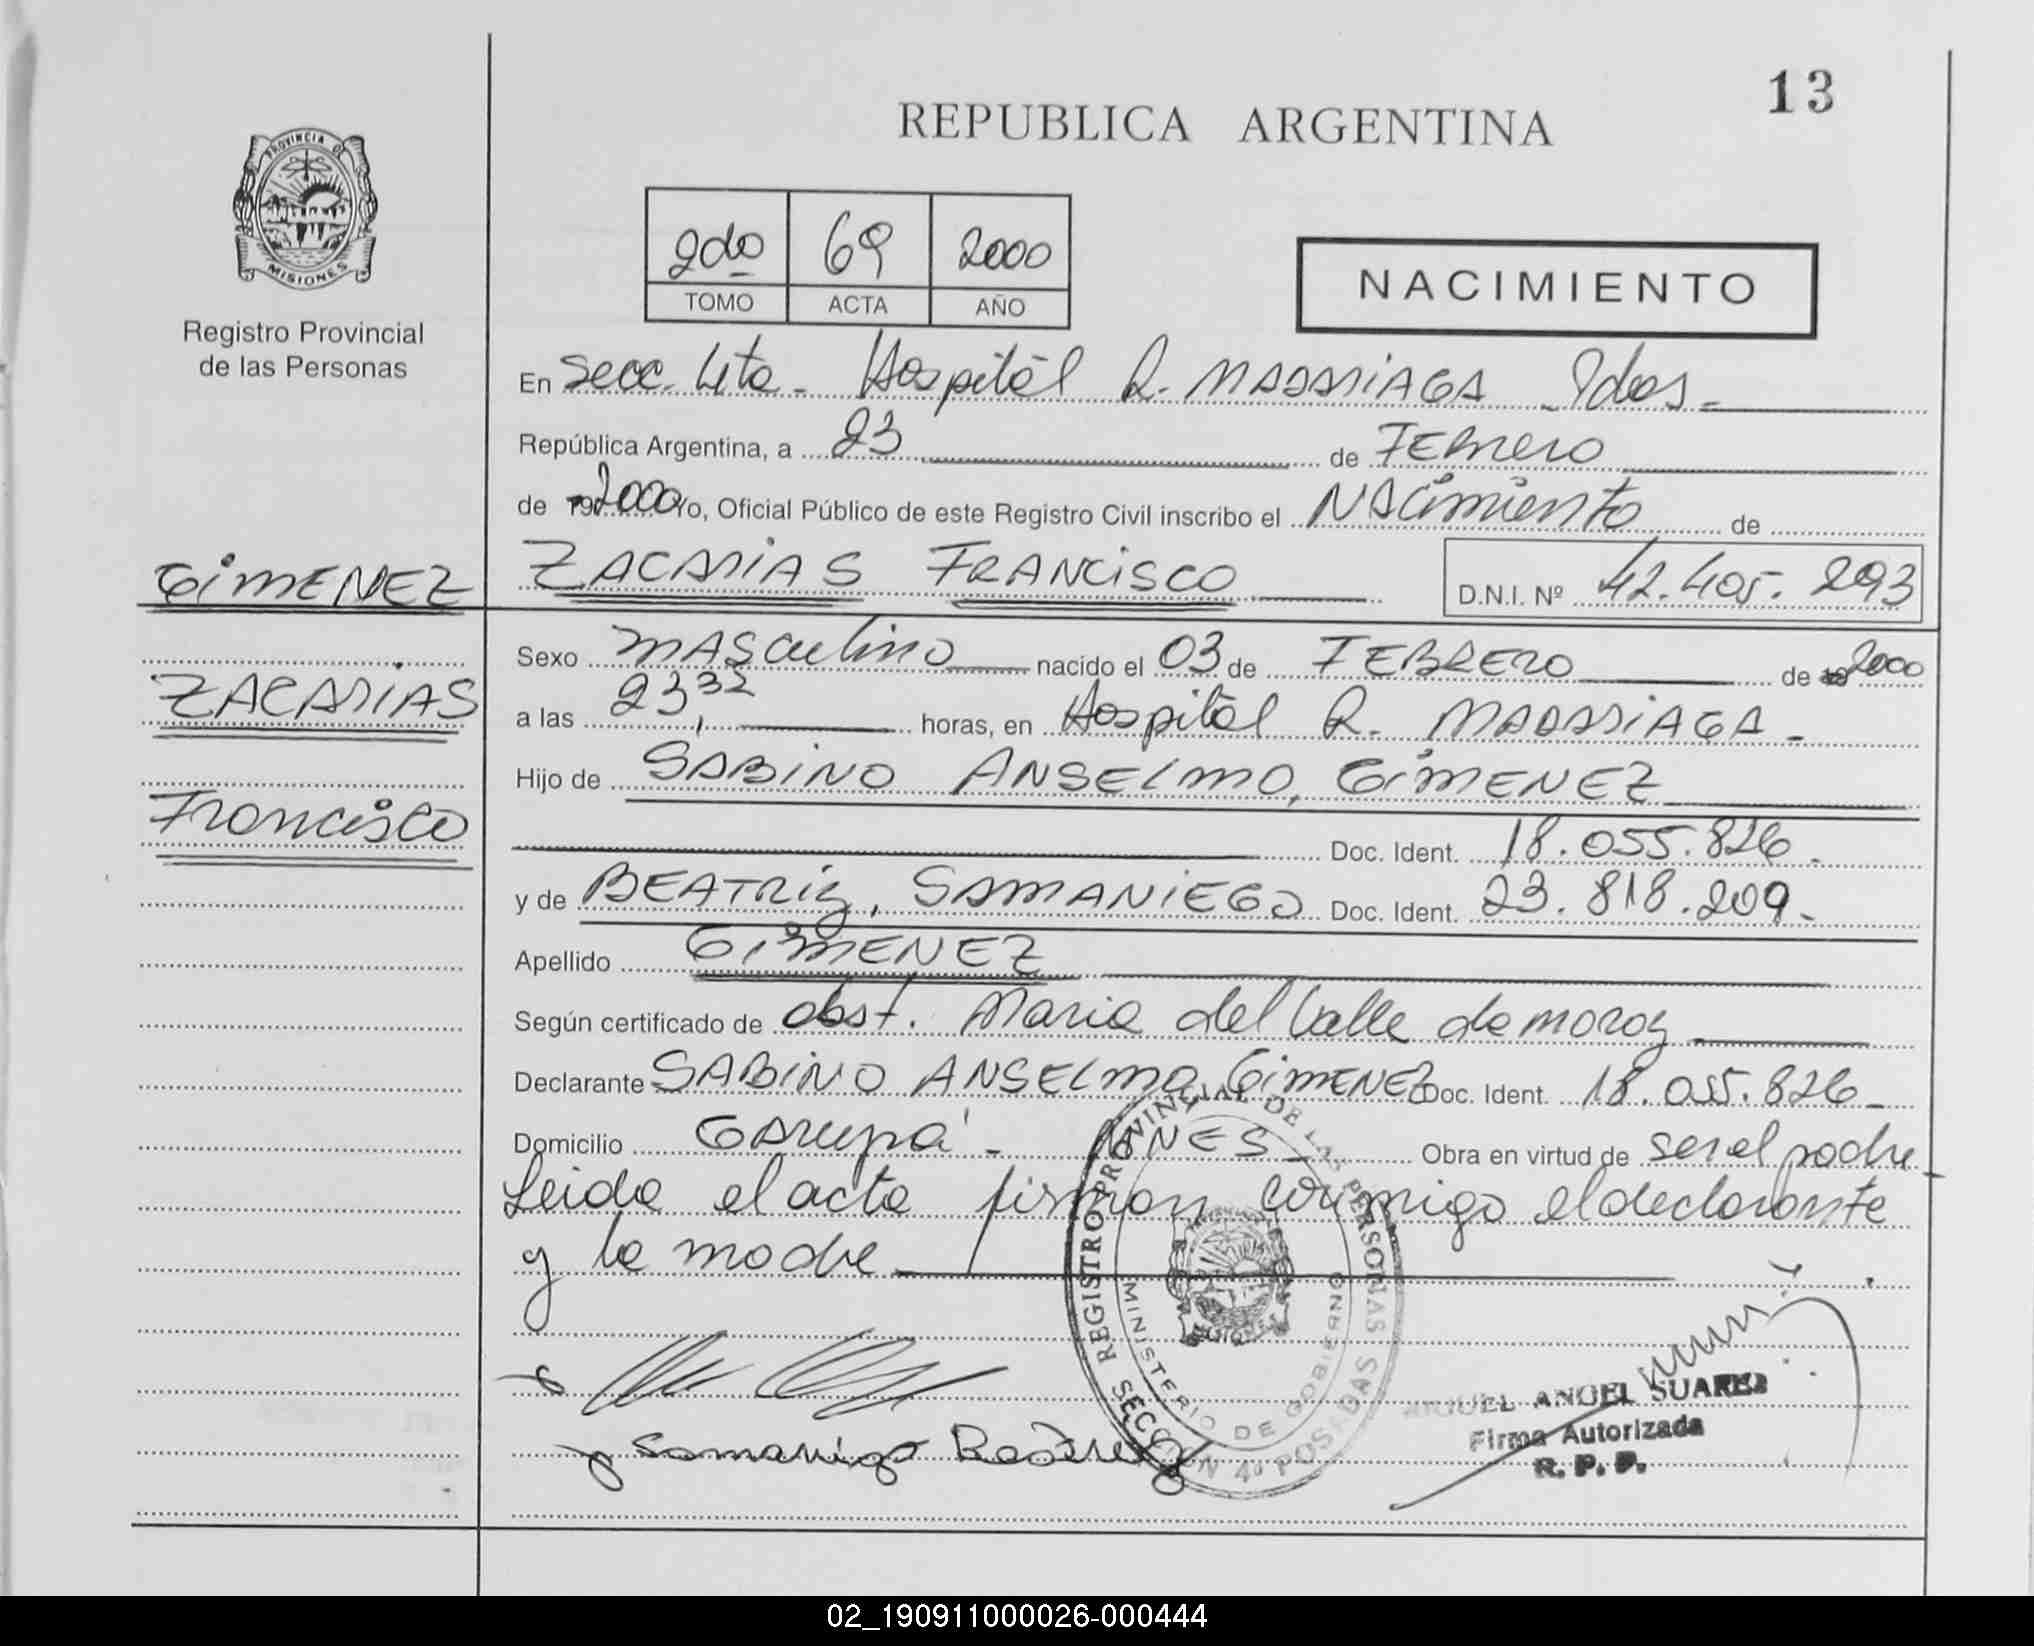 13
REPUBLICA ARGENTINA
PROVINCIA DE
MISIONES
Registro Provincial
de las Personas
2do 69 2000
TOMO ACTA AÑO
NACIMIENTO
En Secc. 4ta - Hospital R. MADARIAGA Pdas -
República Argentina, a 23 de FEBrero
de 2000 Yo, Oficial Público de este Registro Civil inscribo el NAcimiento de
GiMENEZ ZACARIAS FRANCisCO D.N.I. Nº 42.405.293
Sexo MASculino nacido el 03 de FEBRERO de 2000
ZACARIAS
a las 23,32 horas, en Hospital R. MADARiAGA -
Hijo de SABiNO ANSELMO, GiMENEZ
Francisco
Doc. Ident. 18.055.826.
y de BEATRiz, SAMANiEGO Doc. Ident. 23.818.209.
Apellido GiMENEZ
Según certificado de obst. Maria del Valle da moroz
Declarante SABiNO ANSELMO, GiMENEZ Doc. Ident. 18.055.826-
Domicilio GARupá - MNES Obra en virtud de ser el padre
Leida el acta firman conmigo el declarante
y la madre
REGISTRO PROVINCIAL DE LAS PERSONAS
MINISTERIO DE GOBIERNO
SECCION 4ª POSADAS
Samaniego Beatriz
MIGUEL ANGEL SUAREZ
Firma Autorizada
R. P. P.
02_190911000026-000444